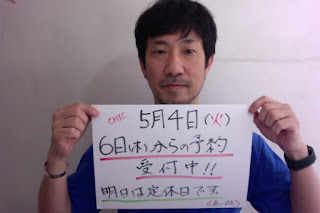 CHIC 5月4日(火)
6日(木)からの予約
受付中!!
明日は定休日です